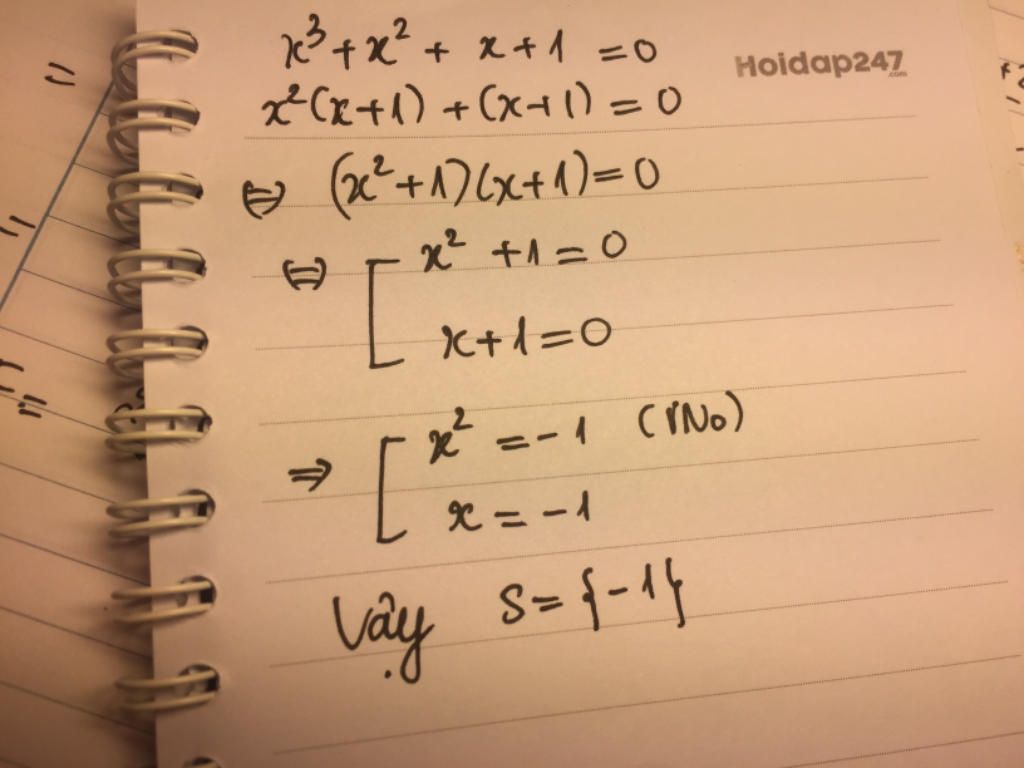 x³ + x² + x + 1 = 0
Hoidap247
.com
x²(x+1) + (x+1) = 0
⇔ (x²+1)(x+1) = 0
⇔ [ x² + 1 = 0
x + 1 = 0
⇒ [ x² = -1 (VNo)
x = -1
Vậy S = {-1}